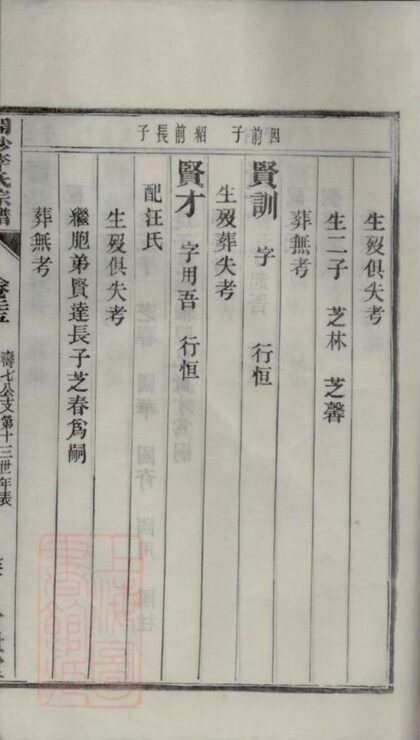 因前子
紹前長子
生歿俱失考
生二子 芝林 芝馨
葬無考
賢訓 字 行恒
生歿葬失考
賢才 字用吾 行恒
配汪氏
生歿俱失考
繼胞弟賢達長子芝春爲嗣
葬無考
李氏宗譜
壽七公支第十三世年表
上海圖書館藏